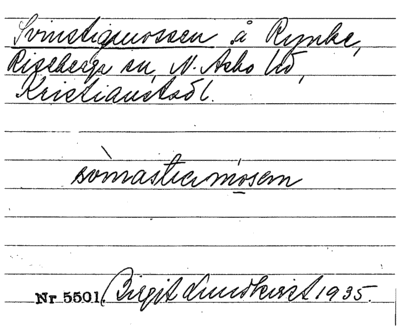 Svinstiamossen å Rynke,
Riseberga sn, N. Åsbo hd,
Kristianstads l.
Nr 5501. Birgit Lundkvist 1935.